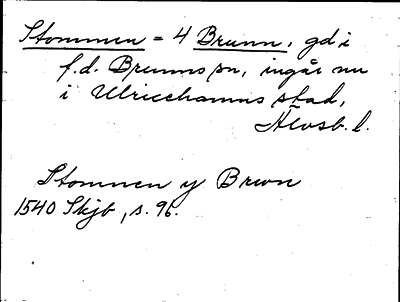 Stommen = 4 Brunn, gd i
f.d. Brunns sn, ingår nu
i Ulricehamns stad,
Älvsb. l.
Stommen y Brwn
1540 Skjb, s. 96.